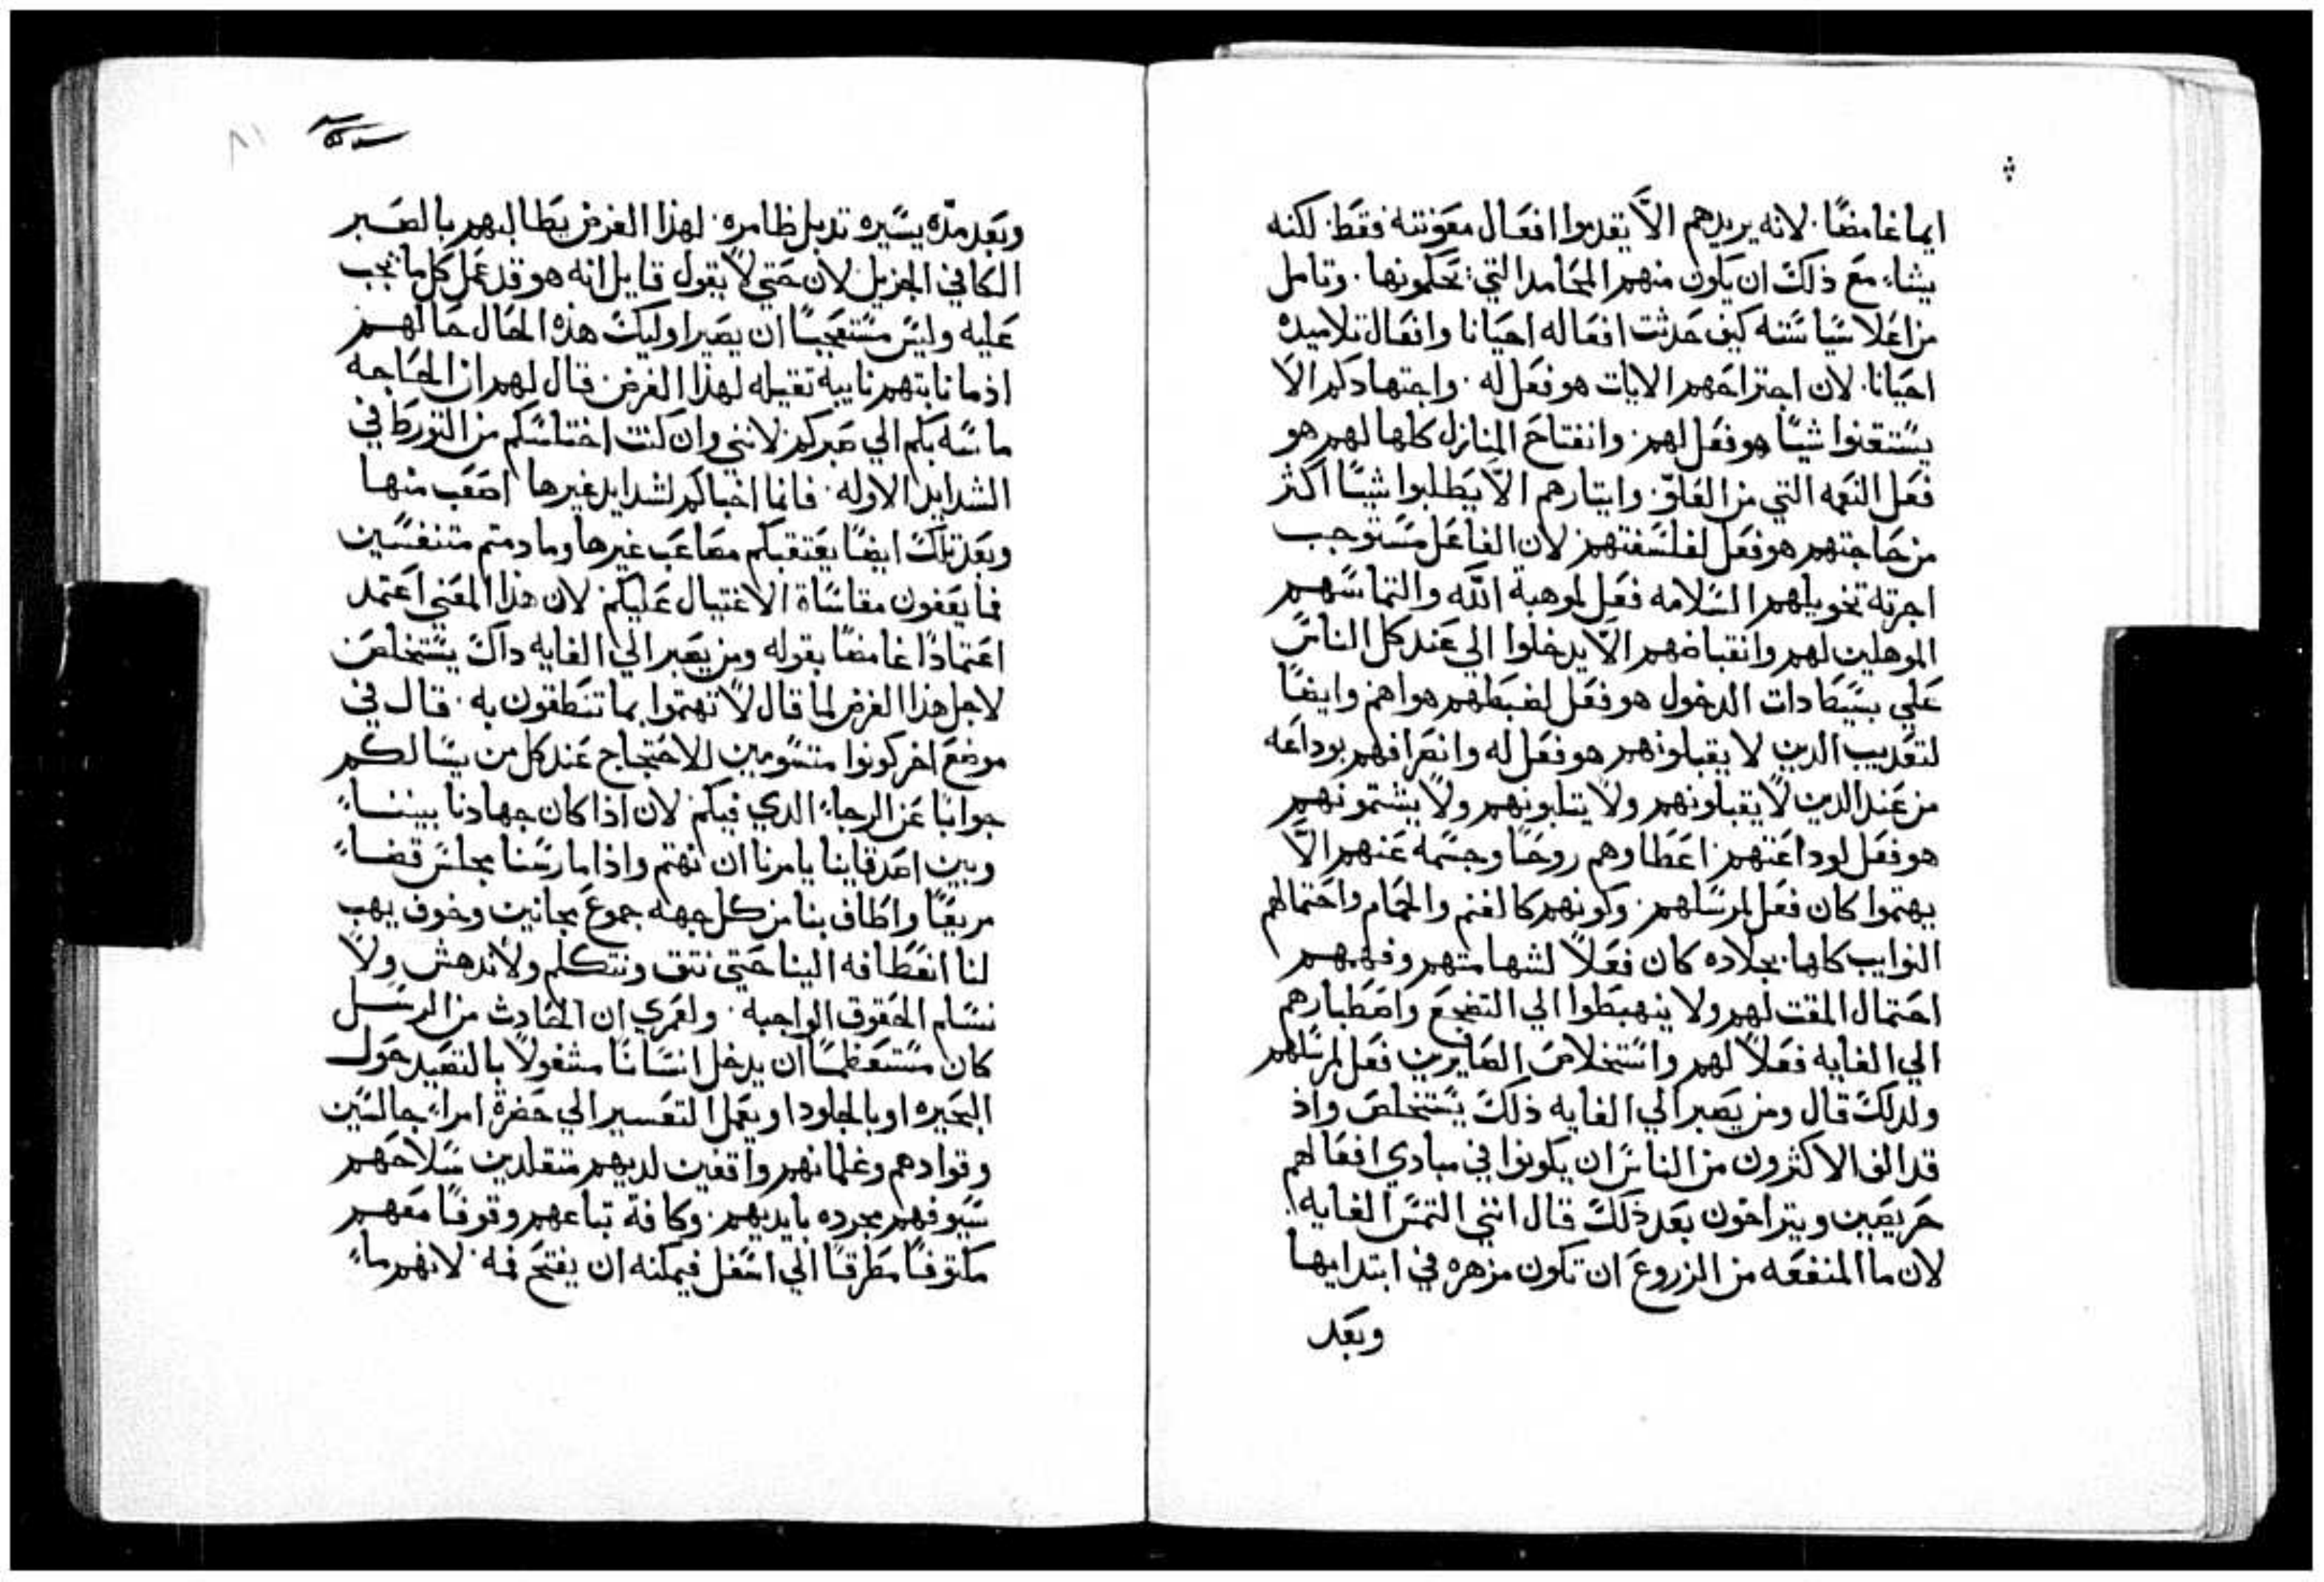 ايما غامضًا. لانه يريدهم الاَّ يقدموا افعال معونته فقط. لكنه
يشاء مع ذلك ان يكون منهم المحامد التي يحكمونها. وتامل
من اعلا سياسته كيف حدثت افعاله احيانا وافعال تلاميده
احيانا. لان اجتراحهم الايات هو فعل له. واجتهادكم الا
يستقنوا شيًا هو فعل لهم. وانفتاح المنازل كلها لهم هو
فعل النعمه التي من العلوّ. وايتارهم الاَّ يطلبوا شيًا اكثر
من حاجتهم هو فعل لفلسفتهم لان الفاعل مستوجب
اجرته تخويلهم السلامه فعل لموهبة الله والتماسهم
الموهلين لهم وانقباضهم الاَّ يدخلوا الي عند كل الناس
علي بسيطا دات الدخول هو فعل لضبطهم هواهم وايضًا
لتعديب الدين لا يقبلونهم هو فعل له وانصرافهم بوداعه
من عند الدين لا يقبلونهم ولا يتلبونهم ولا يشتمونهم
هو فعل لوداعتهم. اعطاوهم روحًا وحسمه عنهم الاَّ
يهتموا كان فعل لمرسلهم. وكونهم كالغنم والحمام واحتمالهم
النوايب كلها بجلاده كان فعلاً لشهامتهم وفهمهم
احتمال المقت لهم ولا ينهبطوا الي التضجع واصطبارهم
الي الغايه فعلاً لهم واستخلاص الصابرين فعل لمرسلهم
ولدلك قال ومن يصبر الي الغايه ذلك يستخلص واذ
قد الف الاكثرون من الناس ان يكونوا في مبادي افعالهم
حريصين ويتراخون بعد ذلك قال انني التمس الغايه.
لان ما المنفعه من الزروع ان تكون مزهره في ابتدايها
وبعد
وبعد مدّه يسيره تدبل ظامره. لهذا الغرض يطالبهم بالصبر
الكافي الجزيل لان حتي لا يقول قايل انه هو قد عمل كل ما يجب
عليه وليس مستعجبًا ان يصير اوليك هذه الحال حالهم
اذ ما نابتهم نايبه تقيله لهذا الغرض قال لهم ان الحاجه
ماسه بكم الي صبركم لانني وان كنت اختلسكم من التورط في
الشدايد الاوله. فانما اخباكم لشدايد غيرها اصعب منها
وبعد تلك ايضًا يعتقبكم مصاعب غيرها وما دمتم متنفسين
فما يعفون مقاساة الاغتيال عليكم لان هذا المعني اعتمد
اعتمادًا غامضًا بقوله ومن يصبر الي الغايه داك يستخلص
لاجل هذا الغرض لما قال لا تهتموا بما تنطقون به. قال في
موضع اخر كونوا متسومين للاحتجاج عند كل من يسالكم
جوابًا عن الرجاء الدي فيكم لان اذا كان جهادنا بيننا
وبين اصدقاينا يامرنا ان نهتم واذا ما رسنا مجلس قضاء
مريعًا واطاف بنا من كل جهه جموع مجانين وخوف يهب
لنا انعطافه الينا حتي نتق ونتكلم ولا ندهش ولا
نسلم الحقوق الواجبه. ولعمري ان الحادث من الرسل
كان مستعظمًا ان يدخل انسانًا مشغولاً بالتصيد حول
البحيره او بالجلود او بعمل التعسير الي حضرة امراء جالسين
وقوادهم وغلمانهم واقفين لديهم متقلدين سلاحهم
سيوفهم مجرده بايديهم. وكافة تباعهم وقوفًا معهم
مكتوفًا مطرقًا الي اسفل فيمكنه ان يفتح فمه. لانهم ما